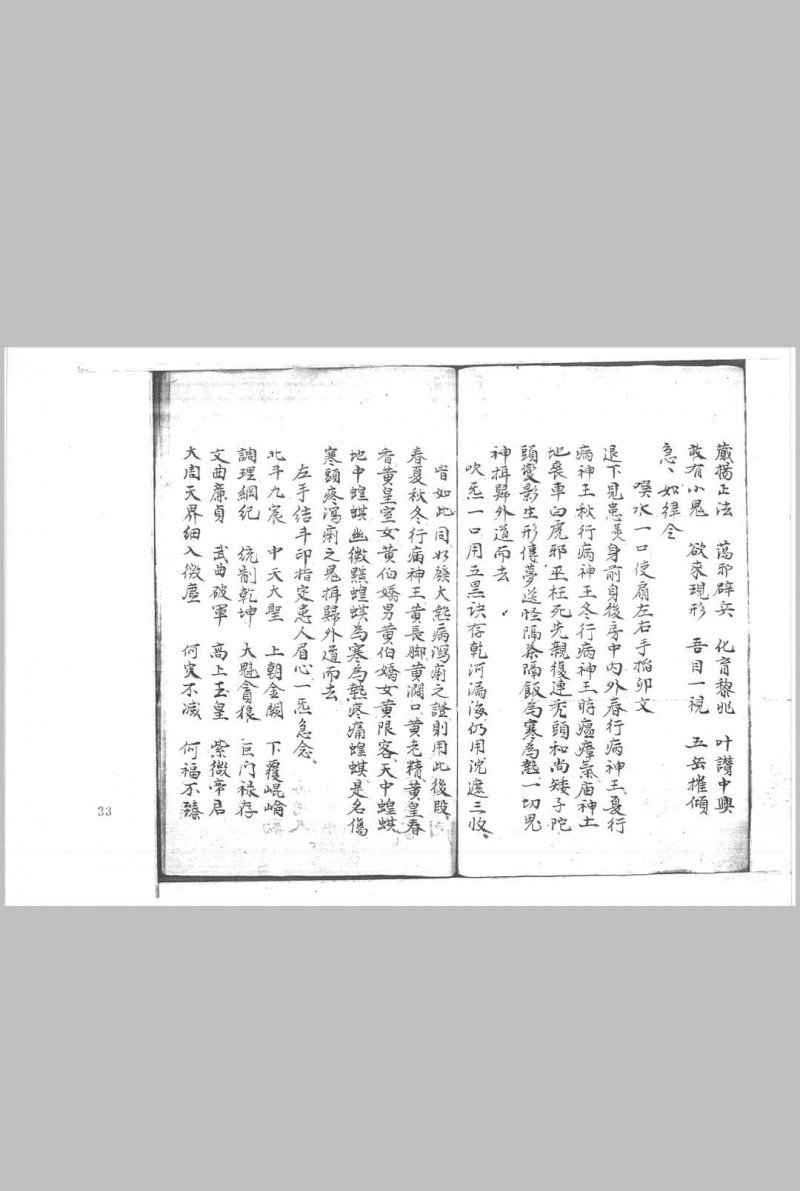 嚴揚正法　蕩邪辟兵　化育黎兆　叶讚中興
敢有小鬼　欲來現形　吾目一視　五岳摧傾
急、如律令
噀水一口使扇左右手掐卯文
退下見患美身前身後房中內外春行病神王、夏行
病神王秋行病神王冬行病神王時瘟瘴氣庙神土
地喪車白虎邪巫枉死先親復連禿頭和尚矮子陀
頭變影生形傳夢送怪隔茶隔飯為寒為熱一切鬼
神揖歸外道而去
吹炁一口用五黑诀存乾河漏海仍用沈遮三收、
皆如此同如發大熱病瀉痢之證則用此後段、
春夏秋冬行病神王黃長脚黃濶口黃老精、黃皇春
香黃皇室女黃伯嬌男黃伯嬌女黃限客、天中蝗蜞
地中蝗蜞幽微黰蝗蜞為寒為熱疼痛蝗蜞、是名傷
寒頭疼瀉痢之鬼揖歸外道而去
左手结斗印指定患人眉心一炁急念、
北斗九宸　中天大聖　上朝金闕　下覆崐崘
調理綱紀　统制乾坤　大魁貪狼　巨门禄存
文曲廉貞　武曲破軍　高上玉皇　紫微帝君
大周天界细入微塵　何灾不滅　何福不臻
33